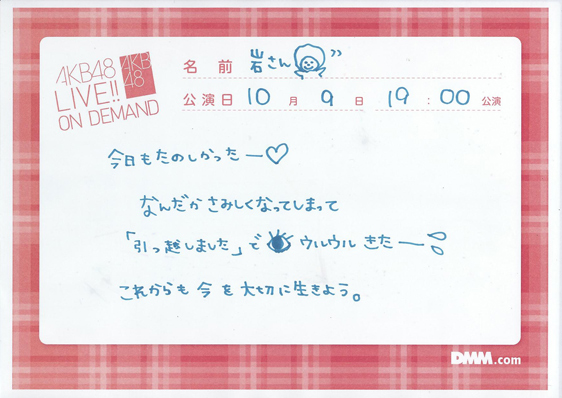 AKB48
LIVE!!
ON DEMAND
AKB
48
名前 岩さん
公演日 10月9日 19:00公演
今日もたのしかったー♡
なんだかさみしくなってしまって
「引っ越しました」で ウルウルきたー
これからも今を大切に生きよう。
DMM.com